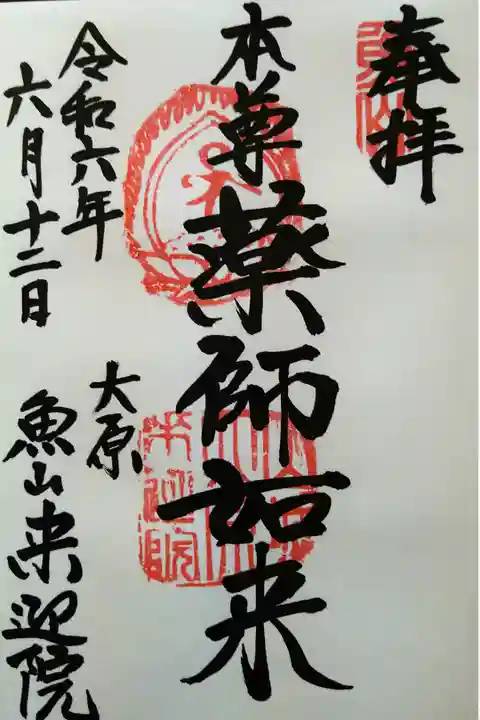 奉拝
本尊薬師如来
令和六年
六月十二日
大原
魚山来迎院